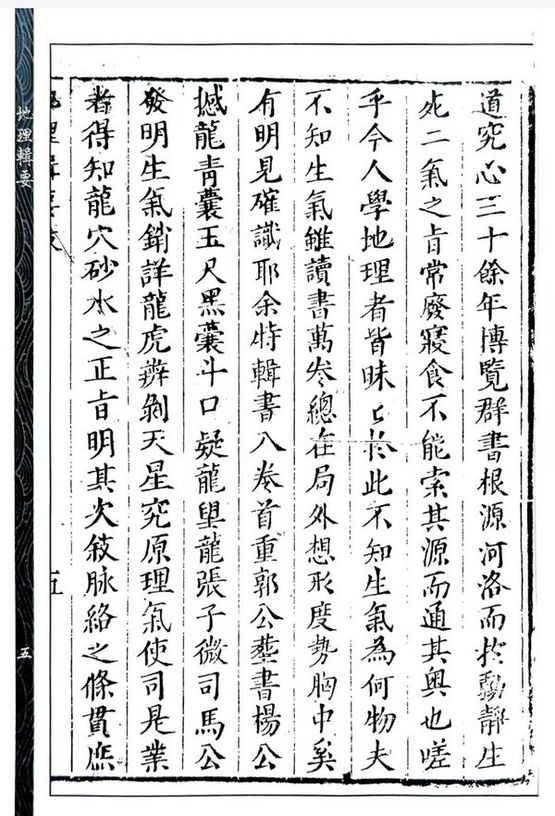 道究心三十餘年博覽群書根源河洛而扵動靜生
死二氣之旨常廢寢食不能索其源而通其奧也嗟
乎今人學地理者皆昧〻扵此不知生氣為何物夫
不知生氣雖讀書萬卷總在局外想形度勢胸中奚
有明見確識耶余特輯書八卷首重郭公塟書楊公
撼龍青囊玉尺黑囊斗口疑龍望龍張子微司馬公
發明生氣銷詳龍虎辨剝天星究原理氣使司是業
者得知龍穴砂水之正旨明其次敍脉絡之條貫庶
五
地理輯要
五